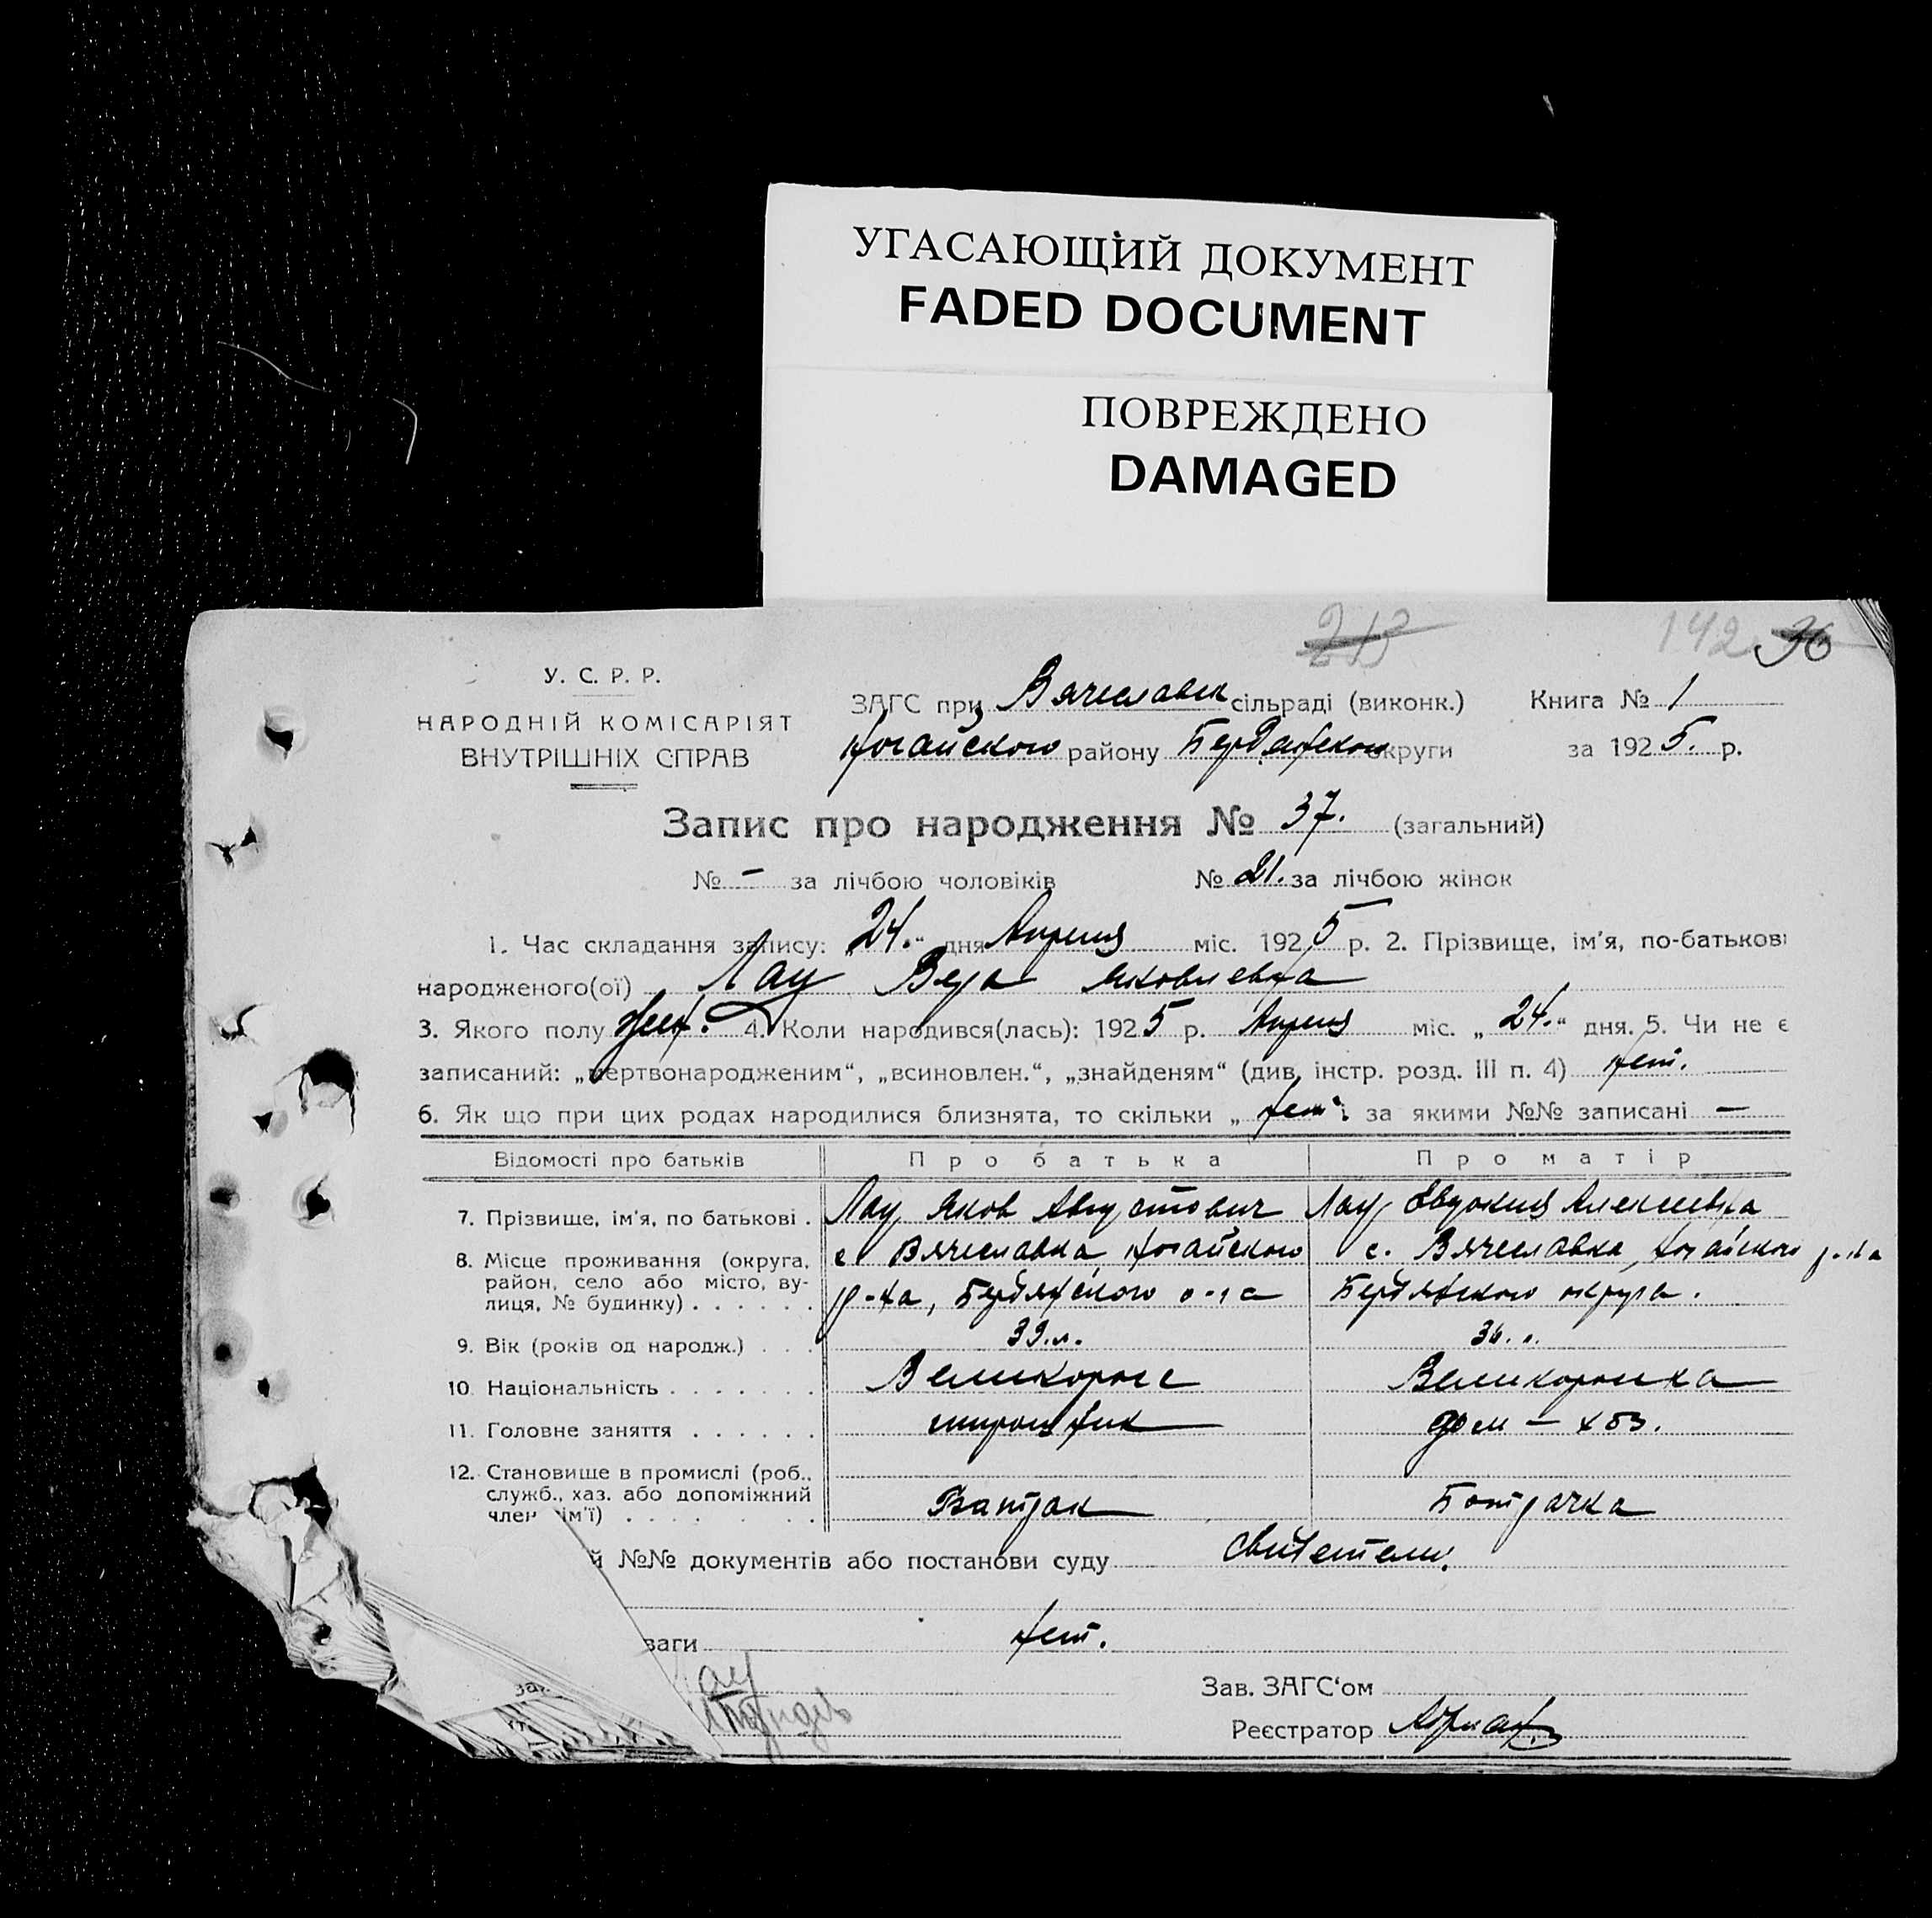 УГАСАЮЩИЙ ДОКУМЕНТ
FADED DOCUMENT
ПОВРЕЖДЕНО
DAMAGED
213 142 36
У. С. Р. Р.
НАРОДНІЙ КОМІСАРІЯТ
ВНУТРІШНІХ СПРАВ
ЗАГС при Вячеславск сільраді (виконк.) Книга № 1
Ногайского району Бердянского округи за 1925. р.
Запис про народження № 37. (загальний)
№ – за лічбою чоловіків № 21. за лічбою жінок
1. Час складання запису: „24.“ дня Апреля міс. 1925 р. 2. Прізвище, ім'я, по-батькові
народженого(ої) Лау Вера Яковлевна
3. Якого полу жен. 4. Коли народився(лась): 1925 р. Апреля міс. „24.“ дня. 5. Чи не є
записаний: „мертвонародженим“, „всиновлен.“, „знайденям“ (див. інстр. розд. III п. 4) нет.
6. Як що при цих родах народилися близнята, то скільки „нет“ за якими №№ записані —
Відомості про батьків Про батька Про матір
7. Прізвище, ім'я, по батькові . Лау Яков Августович Лау Евдокия Алексеевна
8. Місце проживання (округа, с Вячеславка, Ногайского с. Вячеславка, Ногайского р-на
район, село або місто, ву-
лиця, № будинку) . . . . . . р-на, Бердянского Бердянского округа.
9. Вік (років од народж.) . . . 39.л. 36.
10. Національність . . . . . . . Великоросс Великоросска
11. Головне заняття . . . . . . дом —
12. Становище в промислі (роб.,
служб., хаз. або допоміжний
член ім'ї) . . . . . . . Батрак Батрачка
й №№ документів або постанови суду Свидетели.
ваги нет.
Лау
Зав. ЗАГС‘ом
Реєстратор